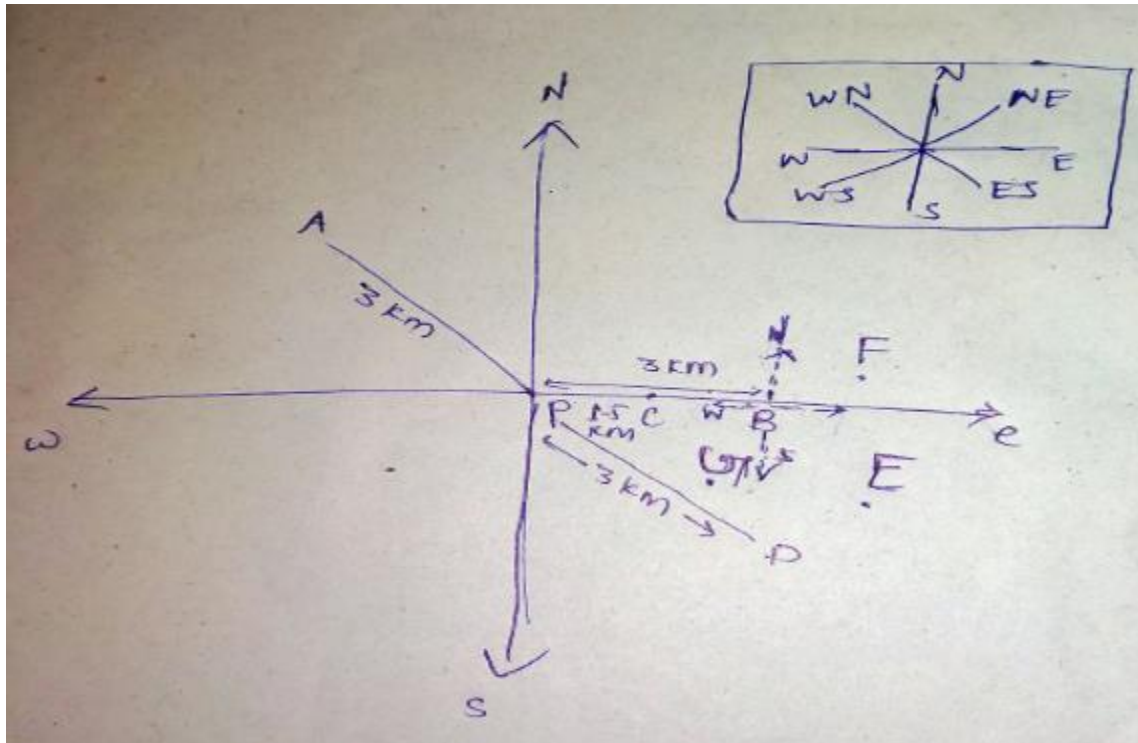 N
WN
N
NE
W
E
WS
S
ES
A
3 km
N
F
3 km
P
1.5
km
C
W
B
e
w
G
S
E
3 km
D
S